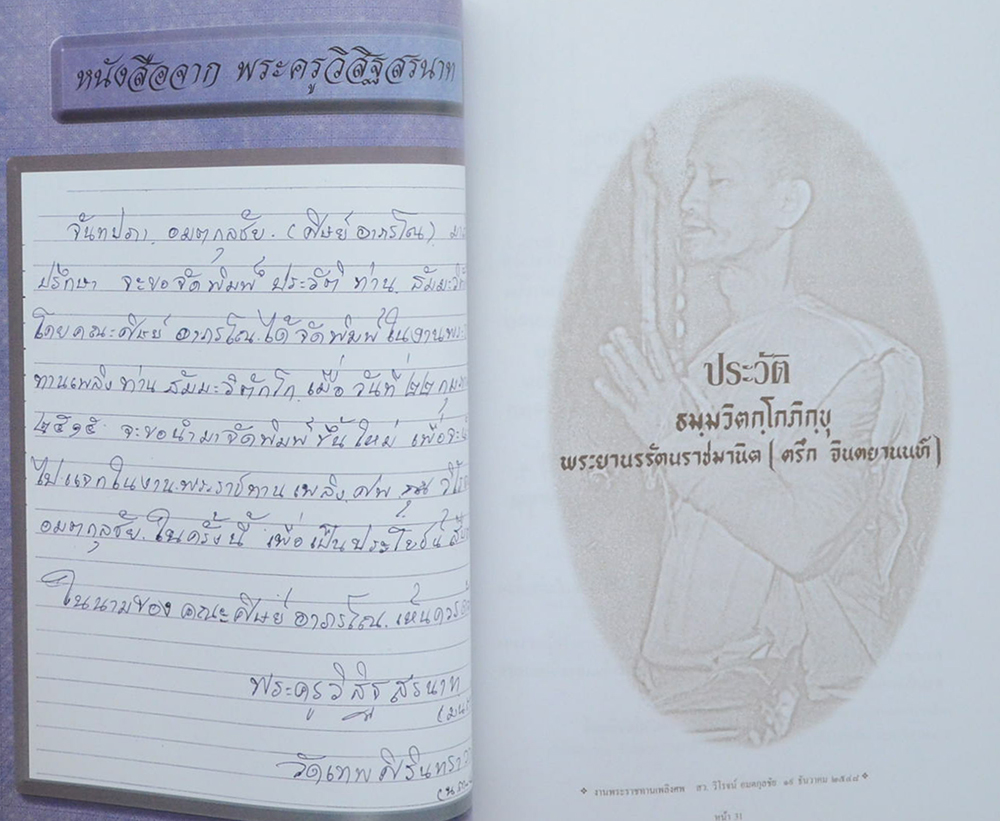 หนังสือจาก พระครูวิสิฐสรนาท
จันทปภา อมตกุลชัย. (ศิษย์อาภรโณ)
ปรึกษา จะขอจัดพิมพ์ ประวัติ ท่าน
โดยคณะศิษย์ อาภรโณ. ได้จัดพิมพ์ในงานพระ
ทานเพลิงท่าน สัมมะวิตักโก. เมื่อ วันที่ ๒๒
๒๕๑๕ จะขอนำมาจัดพิมพ์ ขึ้นใหม่ เพื่อจะ
ไปแจกในงานพระราชทาน เพลิง ศพ คุณ
อมตกุลชัย. ในครั้งนี้ เพื่อเป็นประโยชน์
ในนามของ คณะศิษย์ อาภรโณ. เห็นควร
พระครู วิสิฐ สรนาท
วัดเทพศิรินทราวา
ประวัติ
ธมฺมวิตกฺโกภิกฺขุ
พระยานรรัตนราชมานิต ( ตรึก จินตยานนท์ )
❖ งานพระราชทานเพลิงศพ สว. วิโรจน์ อมตกุลชัย ๑๙ ธันวาคม ๒๕๔๗ ❖
หน้า 31